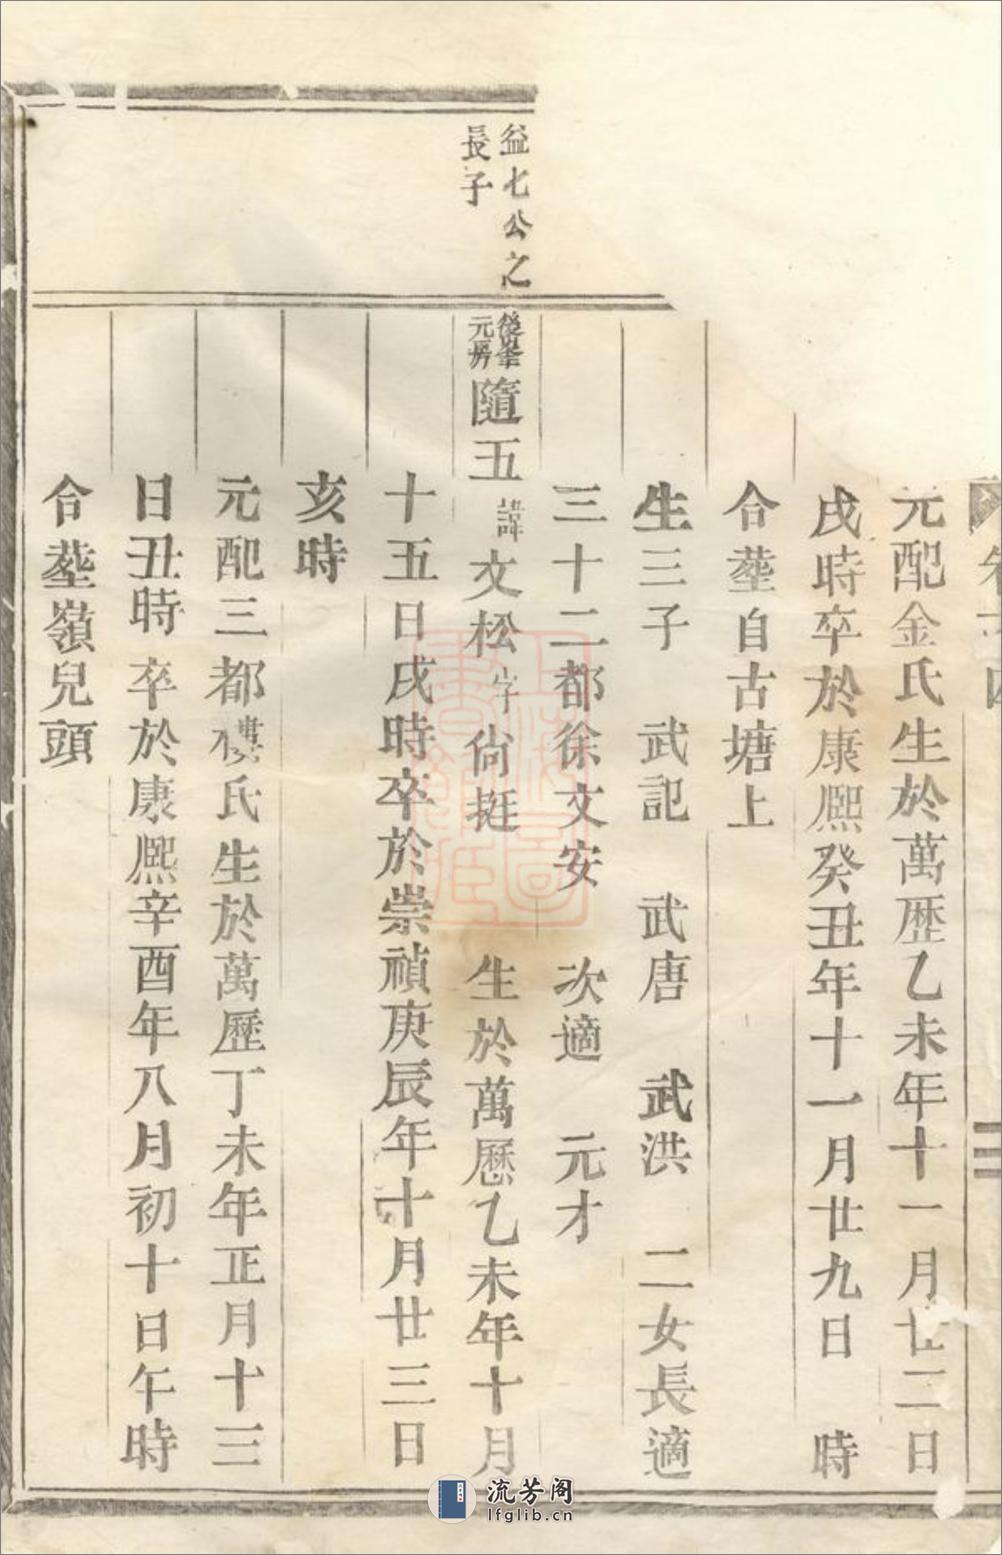 卷十四
元配金氏生於萬歷乙未年十一月廿二日
戌時卒於康熈癸丑年十一月廿九日 時
合塟自古塘上
生三子 武記 武唐 武洪 二女長適
三十二都徐文安 次適 元才
益七公之
長子
後宅
元房
隨五 諱文松字尙挺 生於萬歷乙未年十月
十五日戌時卒於崇禎庚辰年十月廿三日
亥時
元配三都樓氏生於萬歷丁未年正月十三
日丑時卒於康熈辛酉年八月初十日午時
合塟嶺兒頭
上海圖書館藏
流芳阁
lfglib.cn